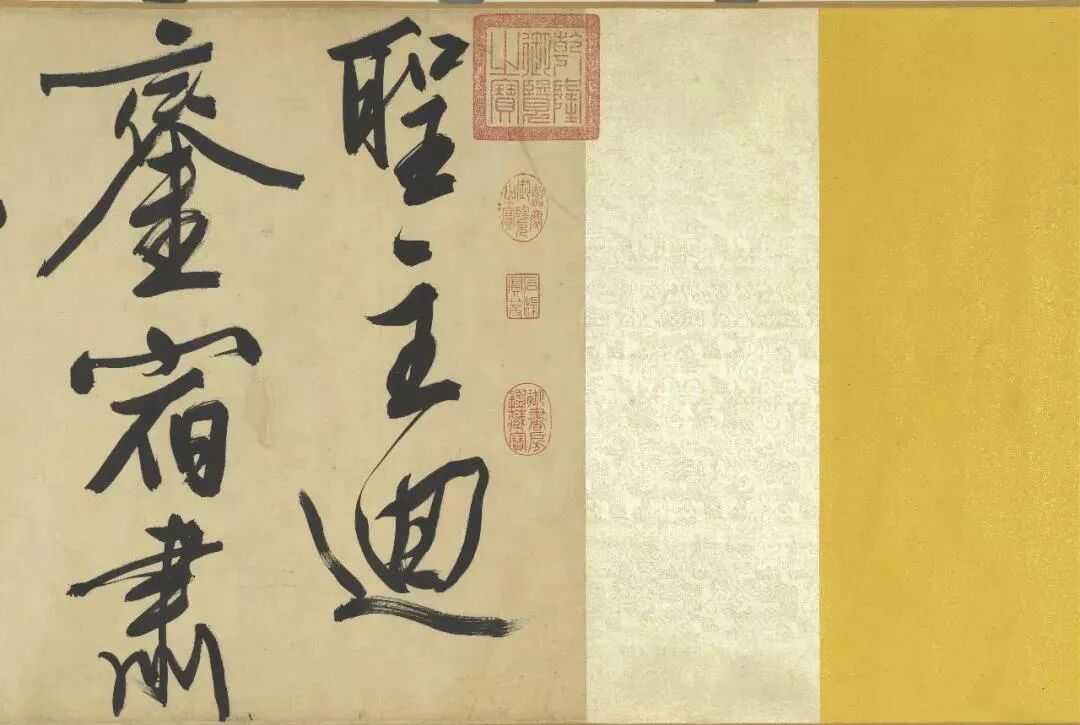 乾隆御覽之寶
嘉慶御覽之寶
石渠寶笈
御書房鑑藏寶
聖主迴
鑾宿肅